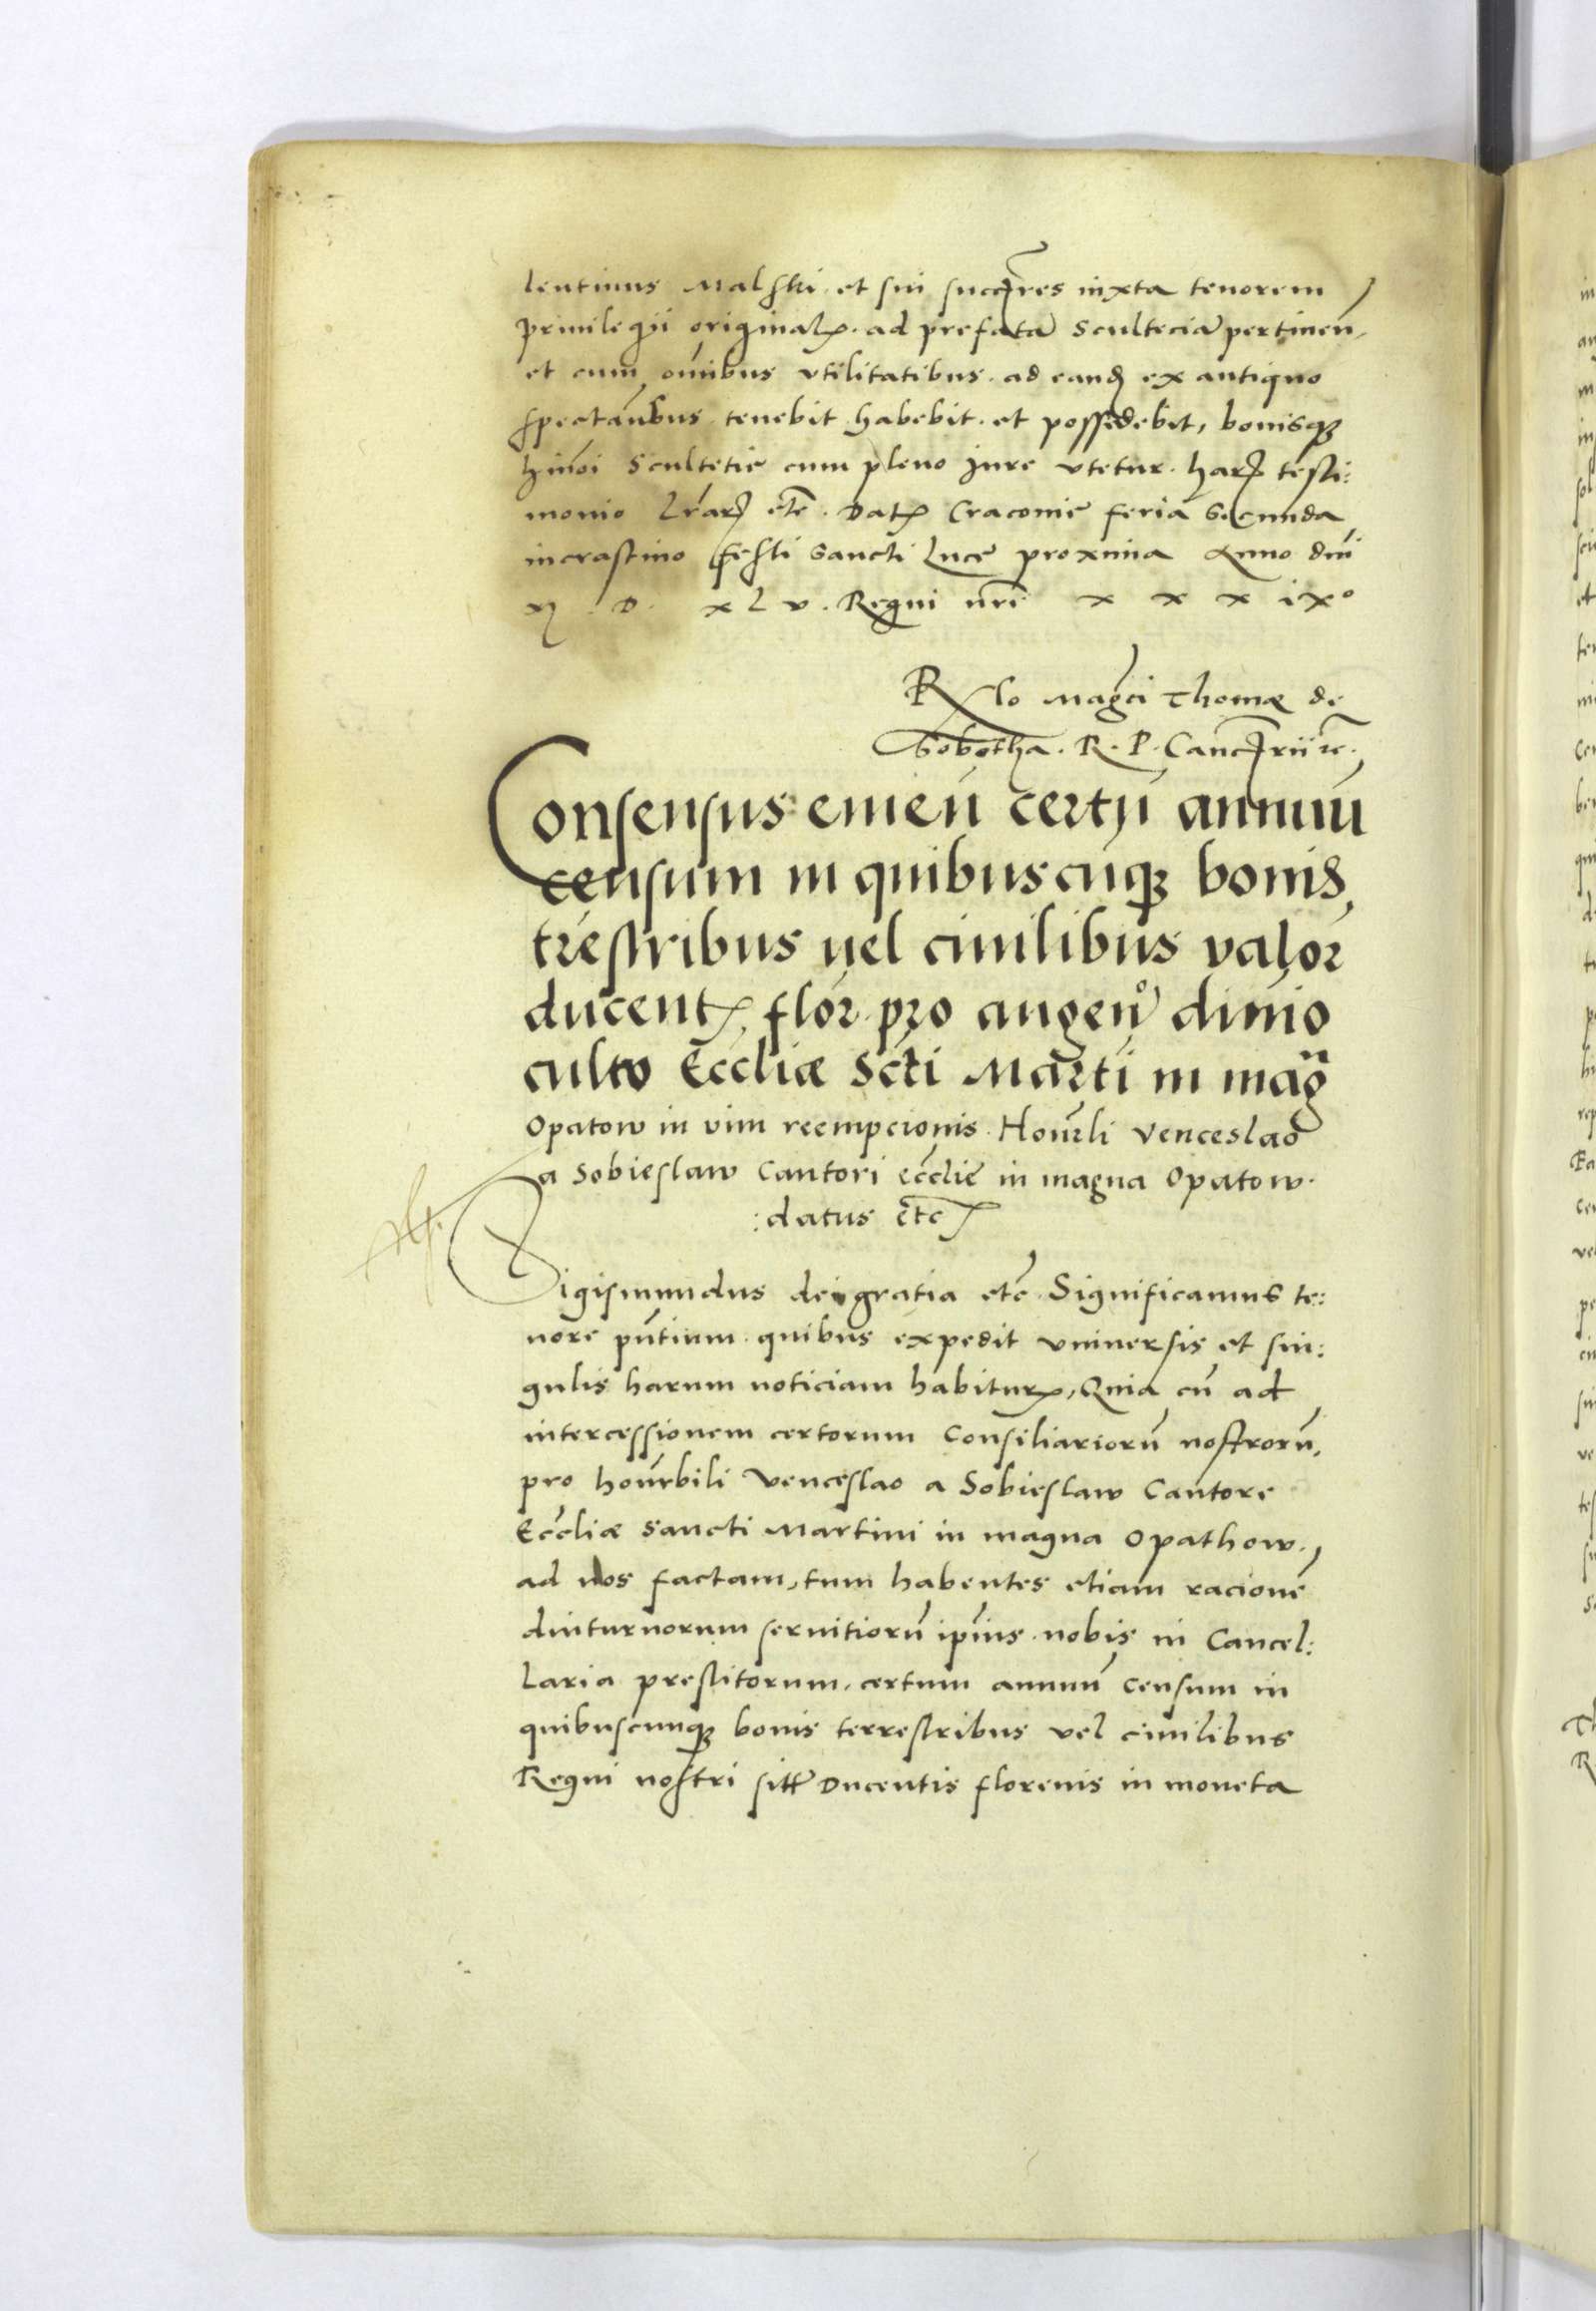 lentinus Malski et sui succ̃res iuxta tenorem
priuilegii originał. ad prefatã Sculteciã pertineñ,
et cum om̃ibus vtilitatibus. ad eand̃ ex antiquo
spectañbus tenebit habebit. et possedebit, bonisqȝ
hm̃oi Scultetie cum pleno Jure vtetur. harꝝ testi:
monio Lr̃arꝝ etc̃. Datꝭ Cracouie feria Secunda
incrastino festi Sancti Luce proxima Anno dñi
M. D. xLv. Regni nr̃i x x x ix°
Rlo Mag̃ci Thomæ de
Sobotha. R. P. Canc̃rii ꝛc̃.
Consensus emeñ certũ annuũ
censum in quibuscũqȝ bonis,
tr̃estribus uel ciuilibus valor
ducentꝭ flor̃. pro augeñ° diuio
cultu Eccl̃iæ Sct̃i Marti in mag̃
Opatow in vim reempcionis. Honor̃li Venceslao
a Sobieslaw Cantori eccl̃ie in magna Opatow.
:datus etc̃
Sigismundus dei gratia etc̃. Significamus te:
nore pñtium. quibus expedit vniuersis et sin:
gulis harum noticiam habiturꝭ, Quia cũ ad
intercessionem certorum Consiliariorũ nostrorũ,
pro honor̃bili Venceslao a Sobieslaw Cantore
Eccl̃iæ Sancti Martini in magna Opathow.
ad nos factam, tum habentes etiam racionẽ
diuturnorum seruitiorũ ip̃ius nobis in Cancel:
laria prestitorum, certum annuũ Censum in
quibuscunqȝ bonis terrestribus vel ciuilibus
Regni nostri sitꝭ Ducentis florenis in moneta